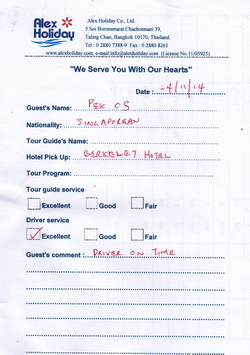 Alex Holiday
Alex Holiday Co., Ltd.
5 Soi Borommarat Chachonnani 39,
Taling Chan, Bangkok 10170, Thailand.
Tel : 0 2880 7388-9 Fax : 0 2880 8261
www.alexholiday.com, e-mail:info@alexholiday.com (License No.11/05925)
"We Serve You With Our Hearts"
Date : -4/11/14
Guest's Name: PEK CS
Nationality: SINGAPOREAN
Tour Guide's Name:
Hotel Pick Up: BERKELEY HOTEL
Tour Program:
Tour guide service
Excellent Good Fair
Driver service
Excellent Good Fair
Guest's comment : DRIVER ON TIME